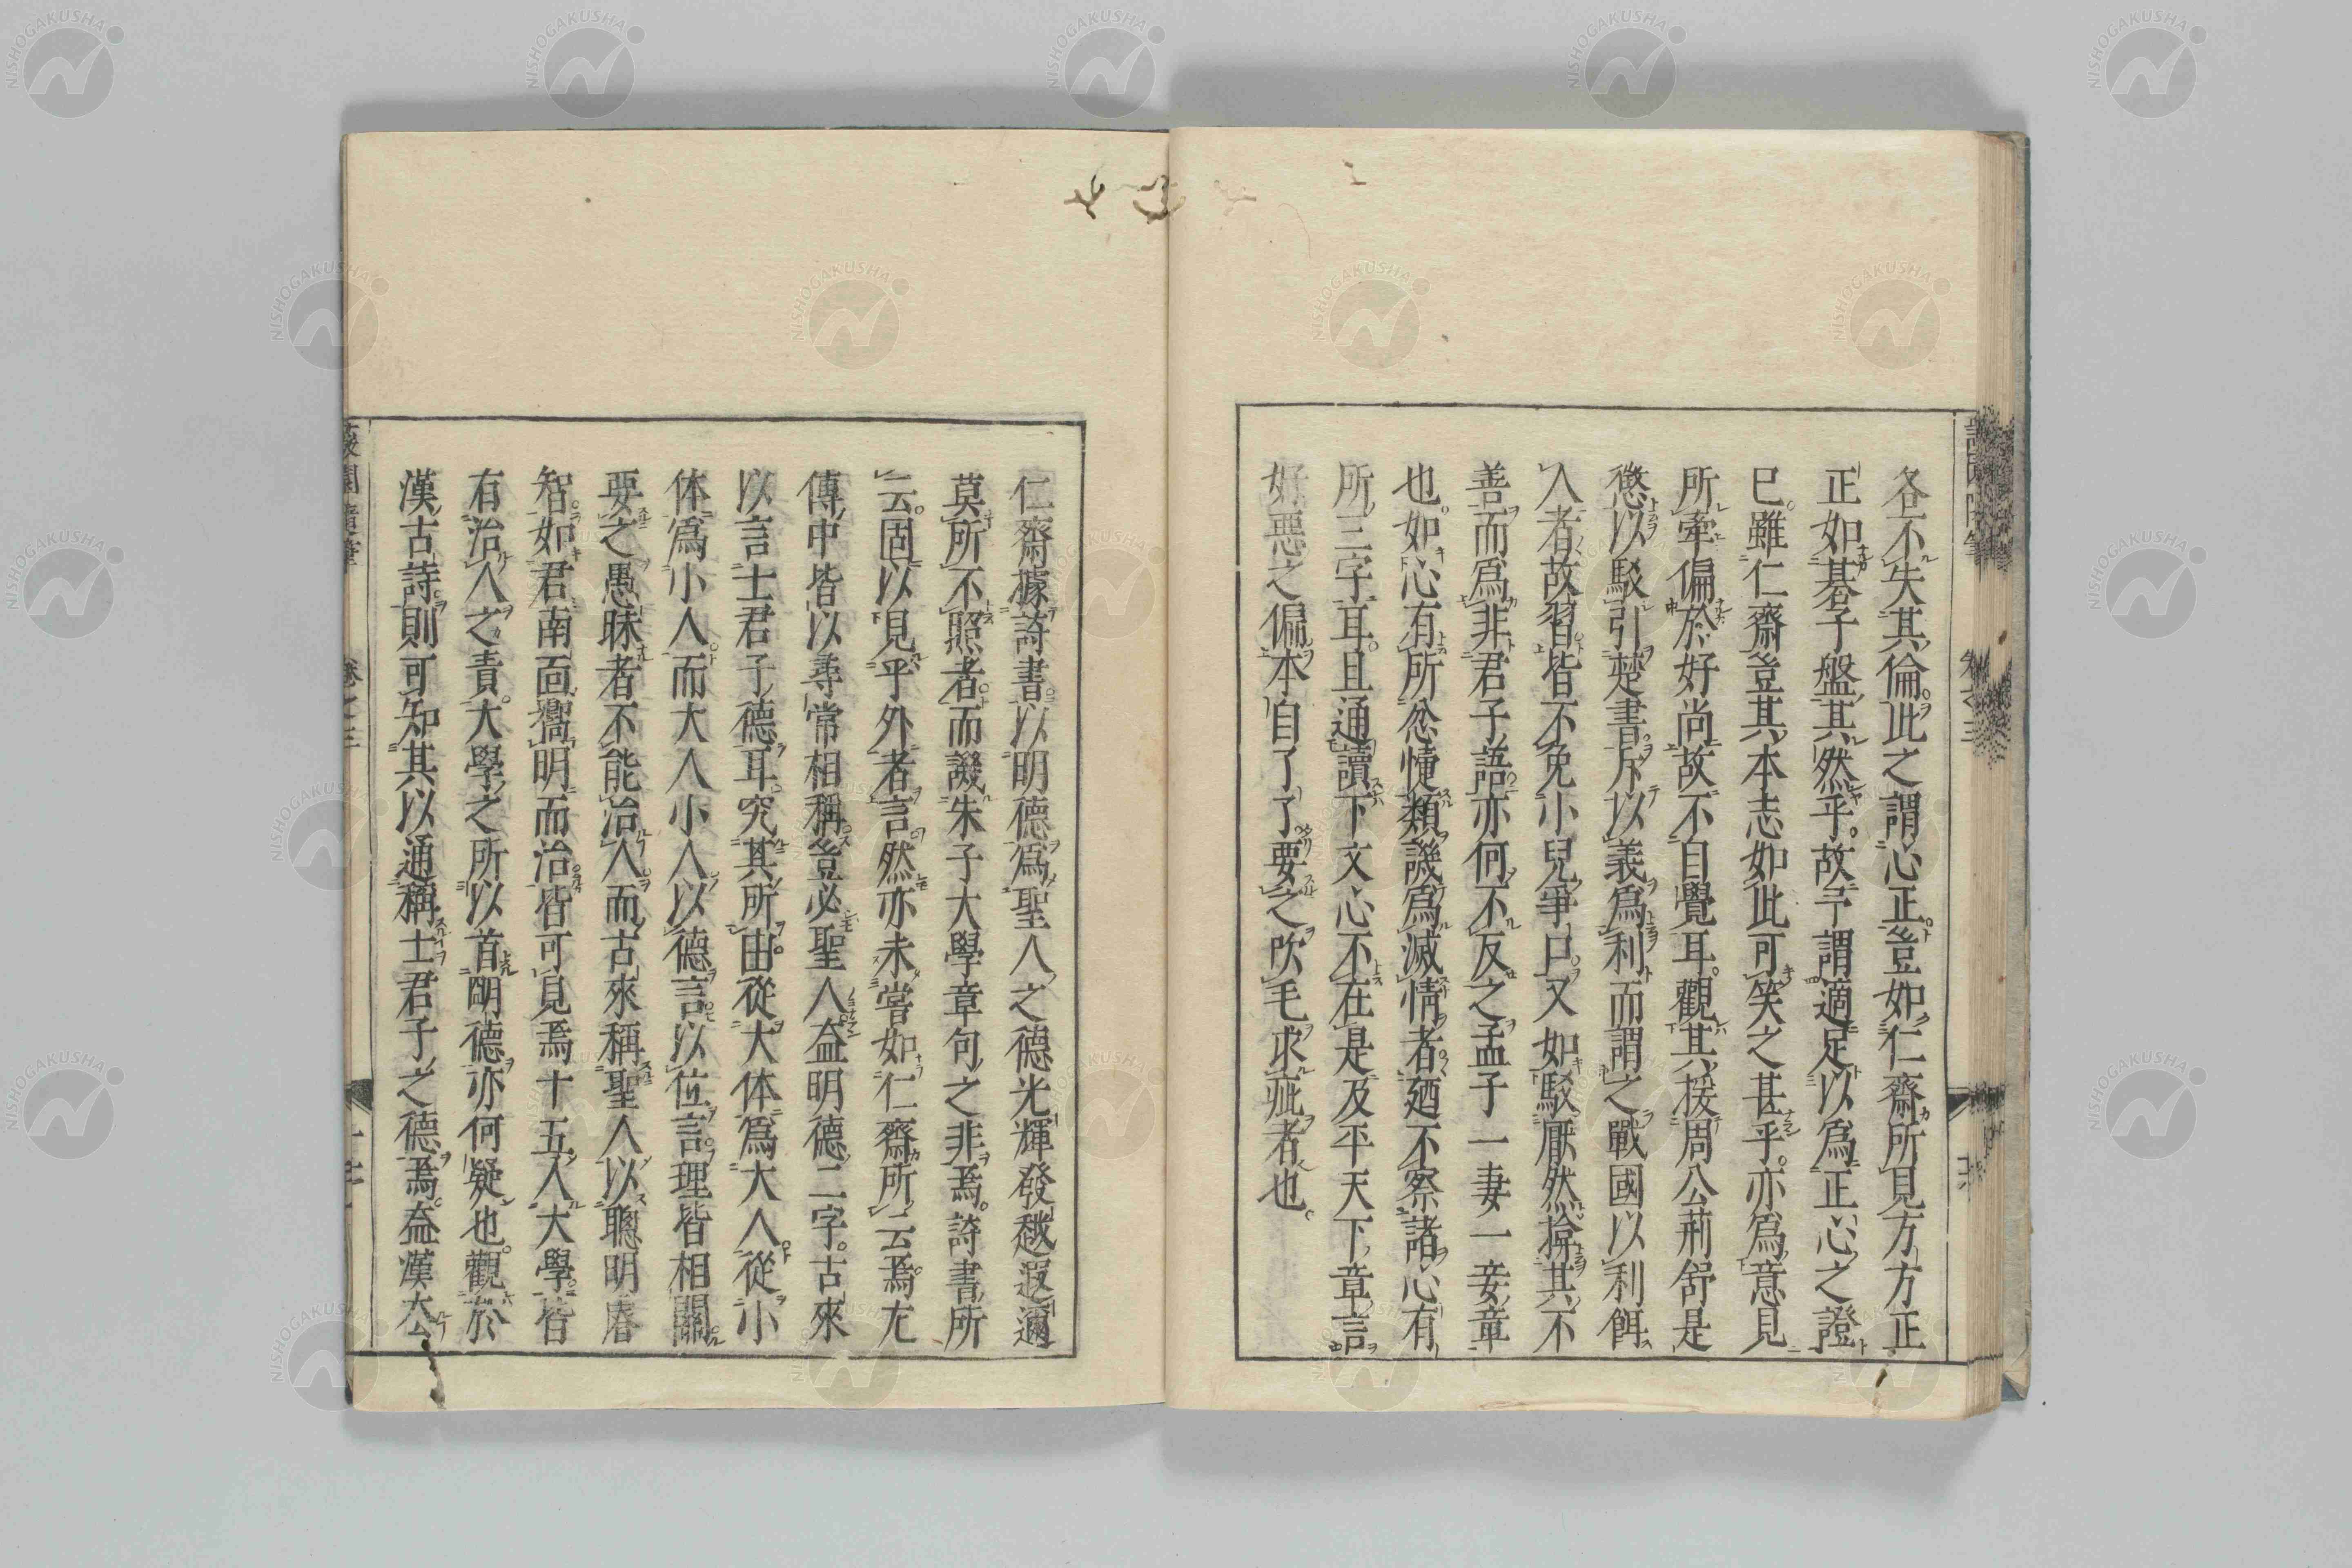 各不失其倫。此之謂心正。豈如仁齋所見方方正
正如碁子盤其然乎。故予謂適足以爲正心之證
已。雖仁齋豈其本志如此可笑之甚乎。亦爲意見
所牽偏於好尚故不自覺耳。觀其援周公荊舒是
懲以駁引楚書。斥以義爲利而謂之戰國以利餌
人者。故習皆不免小兒爭口。又如駁厭然揜其不
善而爲非君子語。亦何不反之孟子一妻一妾章
也。如心有所忿懥類譏爲滅情者。廼不察諸心有
所三字耳。且通讀下文心不在是及平天下章言
好惡之偏本自了了。要之吹毛求疵者也。
仁齋據詩書。以明德爲聖人之德光輝發越遐邇
莫所不照者。而譏朱子大學章句之非焉。詩書所
云。固以見乎外者言。然亦未嘗如仁齋所云焉。尤
傳中皆以尋常相稱。豈必聖人。益明德二字。古來
以言士君子德耳。究其所由。從大体爲大人。從小
体爲小人。而大人小人以德言。以位言。理皆相關。
要之愚昧者不能治人。而古來稱聖人以聰明睿
智。如君南面嚮明而治。皆可見焉。十五入大學。皆
有治人之責。大學之所以首明德。亦何疑也。觀於
漢古詩。則可知其以通稱士君子之德焉。益漢去
蘐園隨筆
卷之三